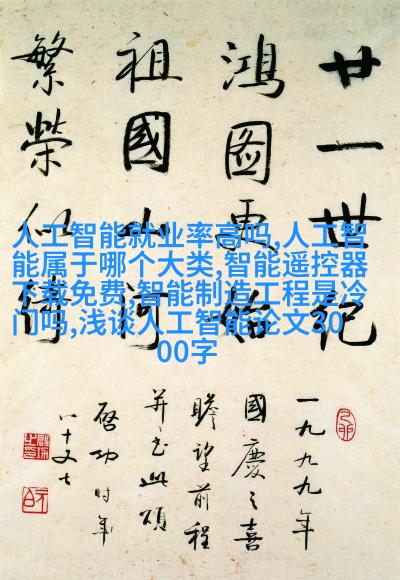 廿一世纪
鸿图更
祖國山河
繁榮似
人工智能就业率高吗,人工智
能属于哪个大类,智能遥控器
下载免费,智能制造工程是冷
门吗,浅谈人工智能论文30
00字
一九九九年
國慶之喜
瞻望前程
并书此頌
啓功时年
八十又七